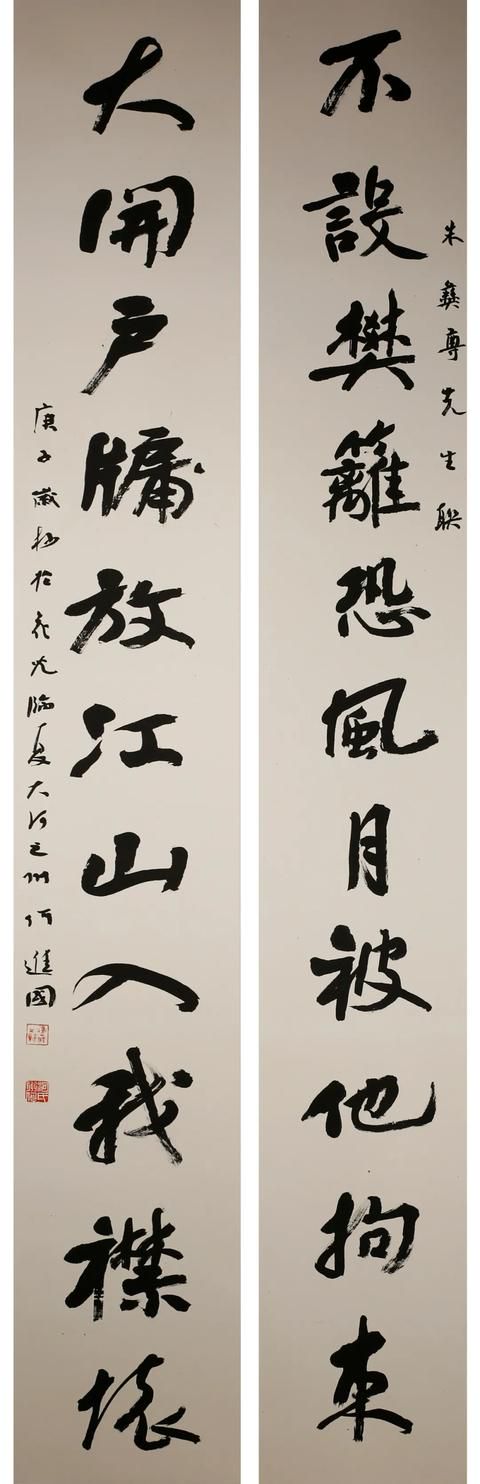 朱彝尊先生聯
不設樊籬恐風月被他拘束
大開戶牖放江山入我襟懷
庚子歲杪於花兒臨夏大河之州何進國